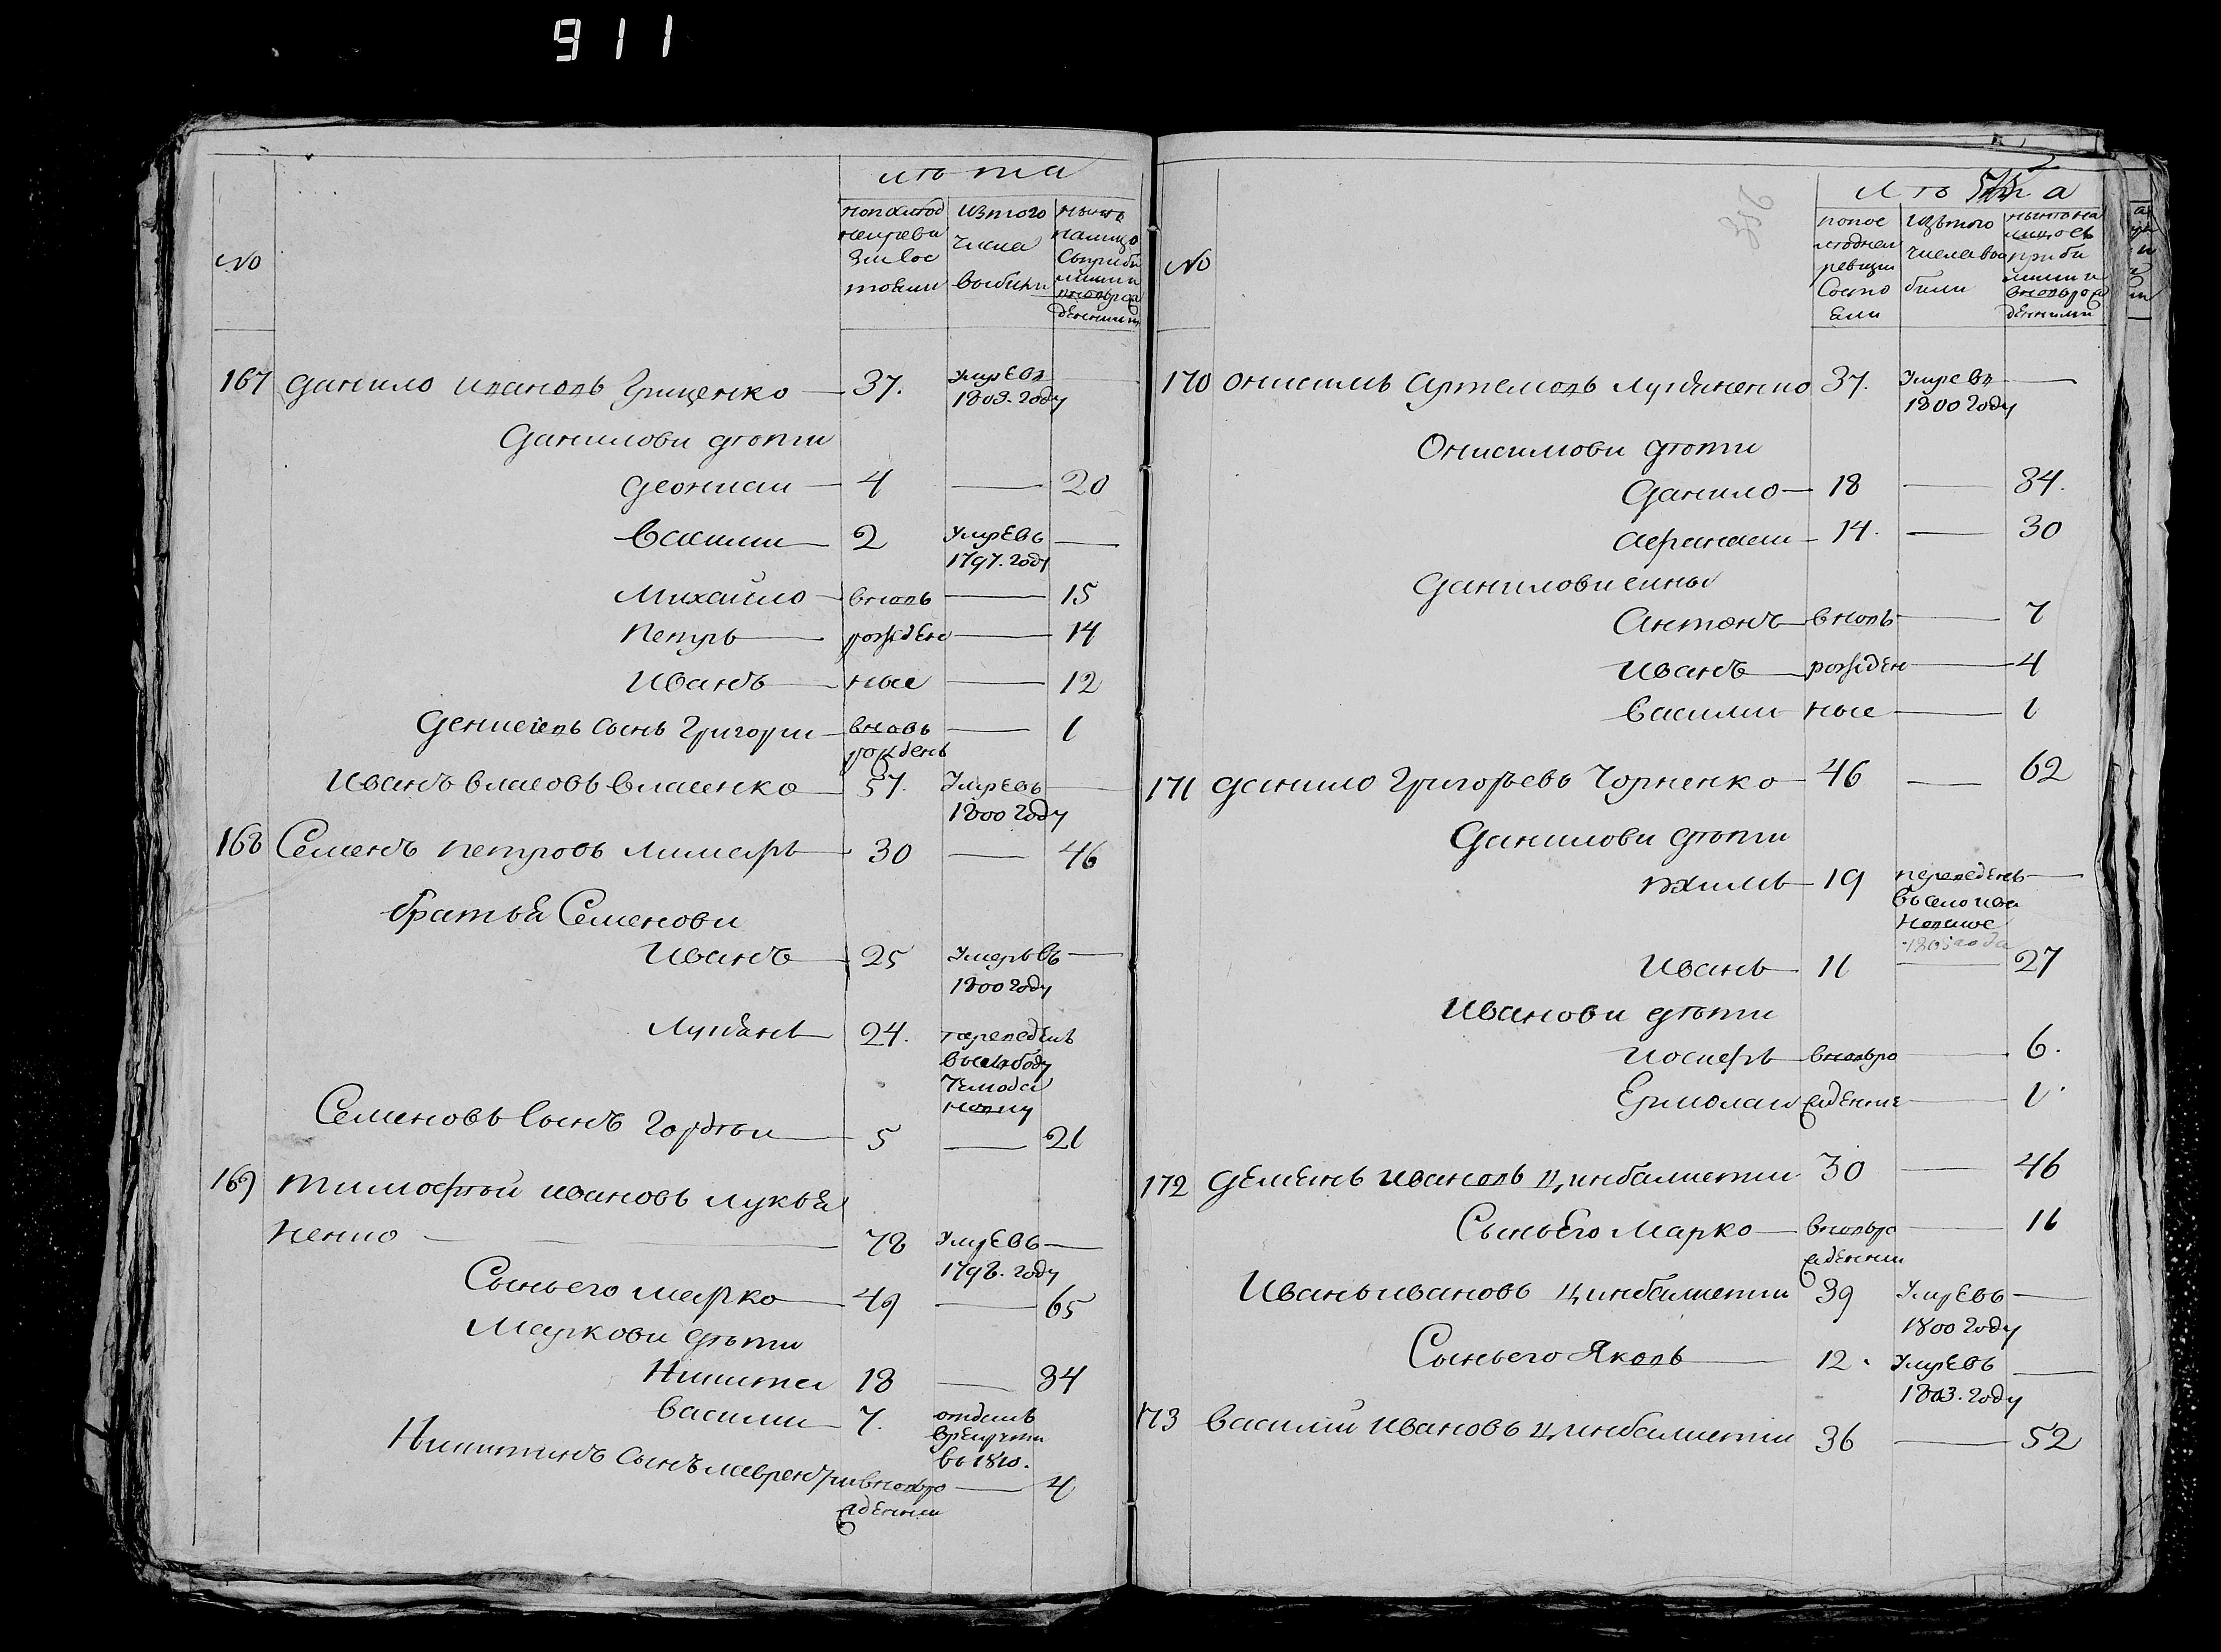 911
лѣта
№
попослѣд
ней реви
зии сос
тояли
изтого
числа
выбыли
нынѣ
налицо
сприбы
лыми и
вновь ро
жденными
167 Данило Ивановъ Гриценко — 37. Умре въ
1809. году
Данилови дѣти
Деонисии — 4 — 20
Василии — 2 Умре въ —
1797. году
Михайло — вновь — 15
Петръ — рожден — 14
Иванъ — ные — 12
Денисiевъ сынъ Григории — вновь — 1
рожденъ
Иванъ Власовъ Власенко — 57. Умре въ —
1800 году
168 Семенъ Петровъ Лимаръ — 30 — 46
братья Семенови
Иванъ — 25 Умеръ въ —
1800 году
Лукянъ — 24. переведенъ
въ слободу
Семеновъ сынъ Гордѣи — 5 — 21
169 Тимофѣй Ивановъ Лукья
ненко — 78 Умре въ —
1798. году
Сынъ его Марко — 49 — 65
Маркови дѣти
Никита 18 — 34
Василии — 7. отданъ
в рекруты
въ 1810.
Никитинъ сынъ Лаврентии вновь ро — 4
жденныи
лѣта
№
попос
лѣдней
ревизии
состо
яли
изътого
числа вы
были
нынѣ на
лицо съ
прибы
лыми и
вновь ро
жденными
170 Онисимъ Артемовъ Лукяненко 37. Умре въ —
1800 году
Онисимови дѣти
Данило — 18 — 34.
Афанасии — 14. — 30
Данилови сины
Антонъ — вновь — 7
Иванъ — рожден — 4
Василии ные — 1
171 Данило Григорьевъ Чорненко — 46 — 62
Данилови дѣти
Якимъ — 19 переведенъ —
въ село
1805 года
Иванъ — 11 — 27
Иванови дѣти
Иосифъ — вновь ро — 6.
Ермолаи жденние — 1.
172 Деменъ Ивановъ Цинбалистии 30 — 46
Сынъ его Марко — вновь ро — 16
жденныи
Иванъ Ивановъ Цинбалистии 39 Умре въ —
1800 году
Сынъ его Яковъ — 12. Умре въ —
1803. году
173 Василии Ивановъ Цинбалистии 36 — 52